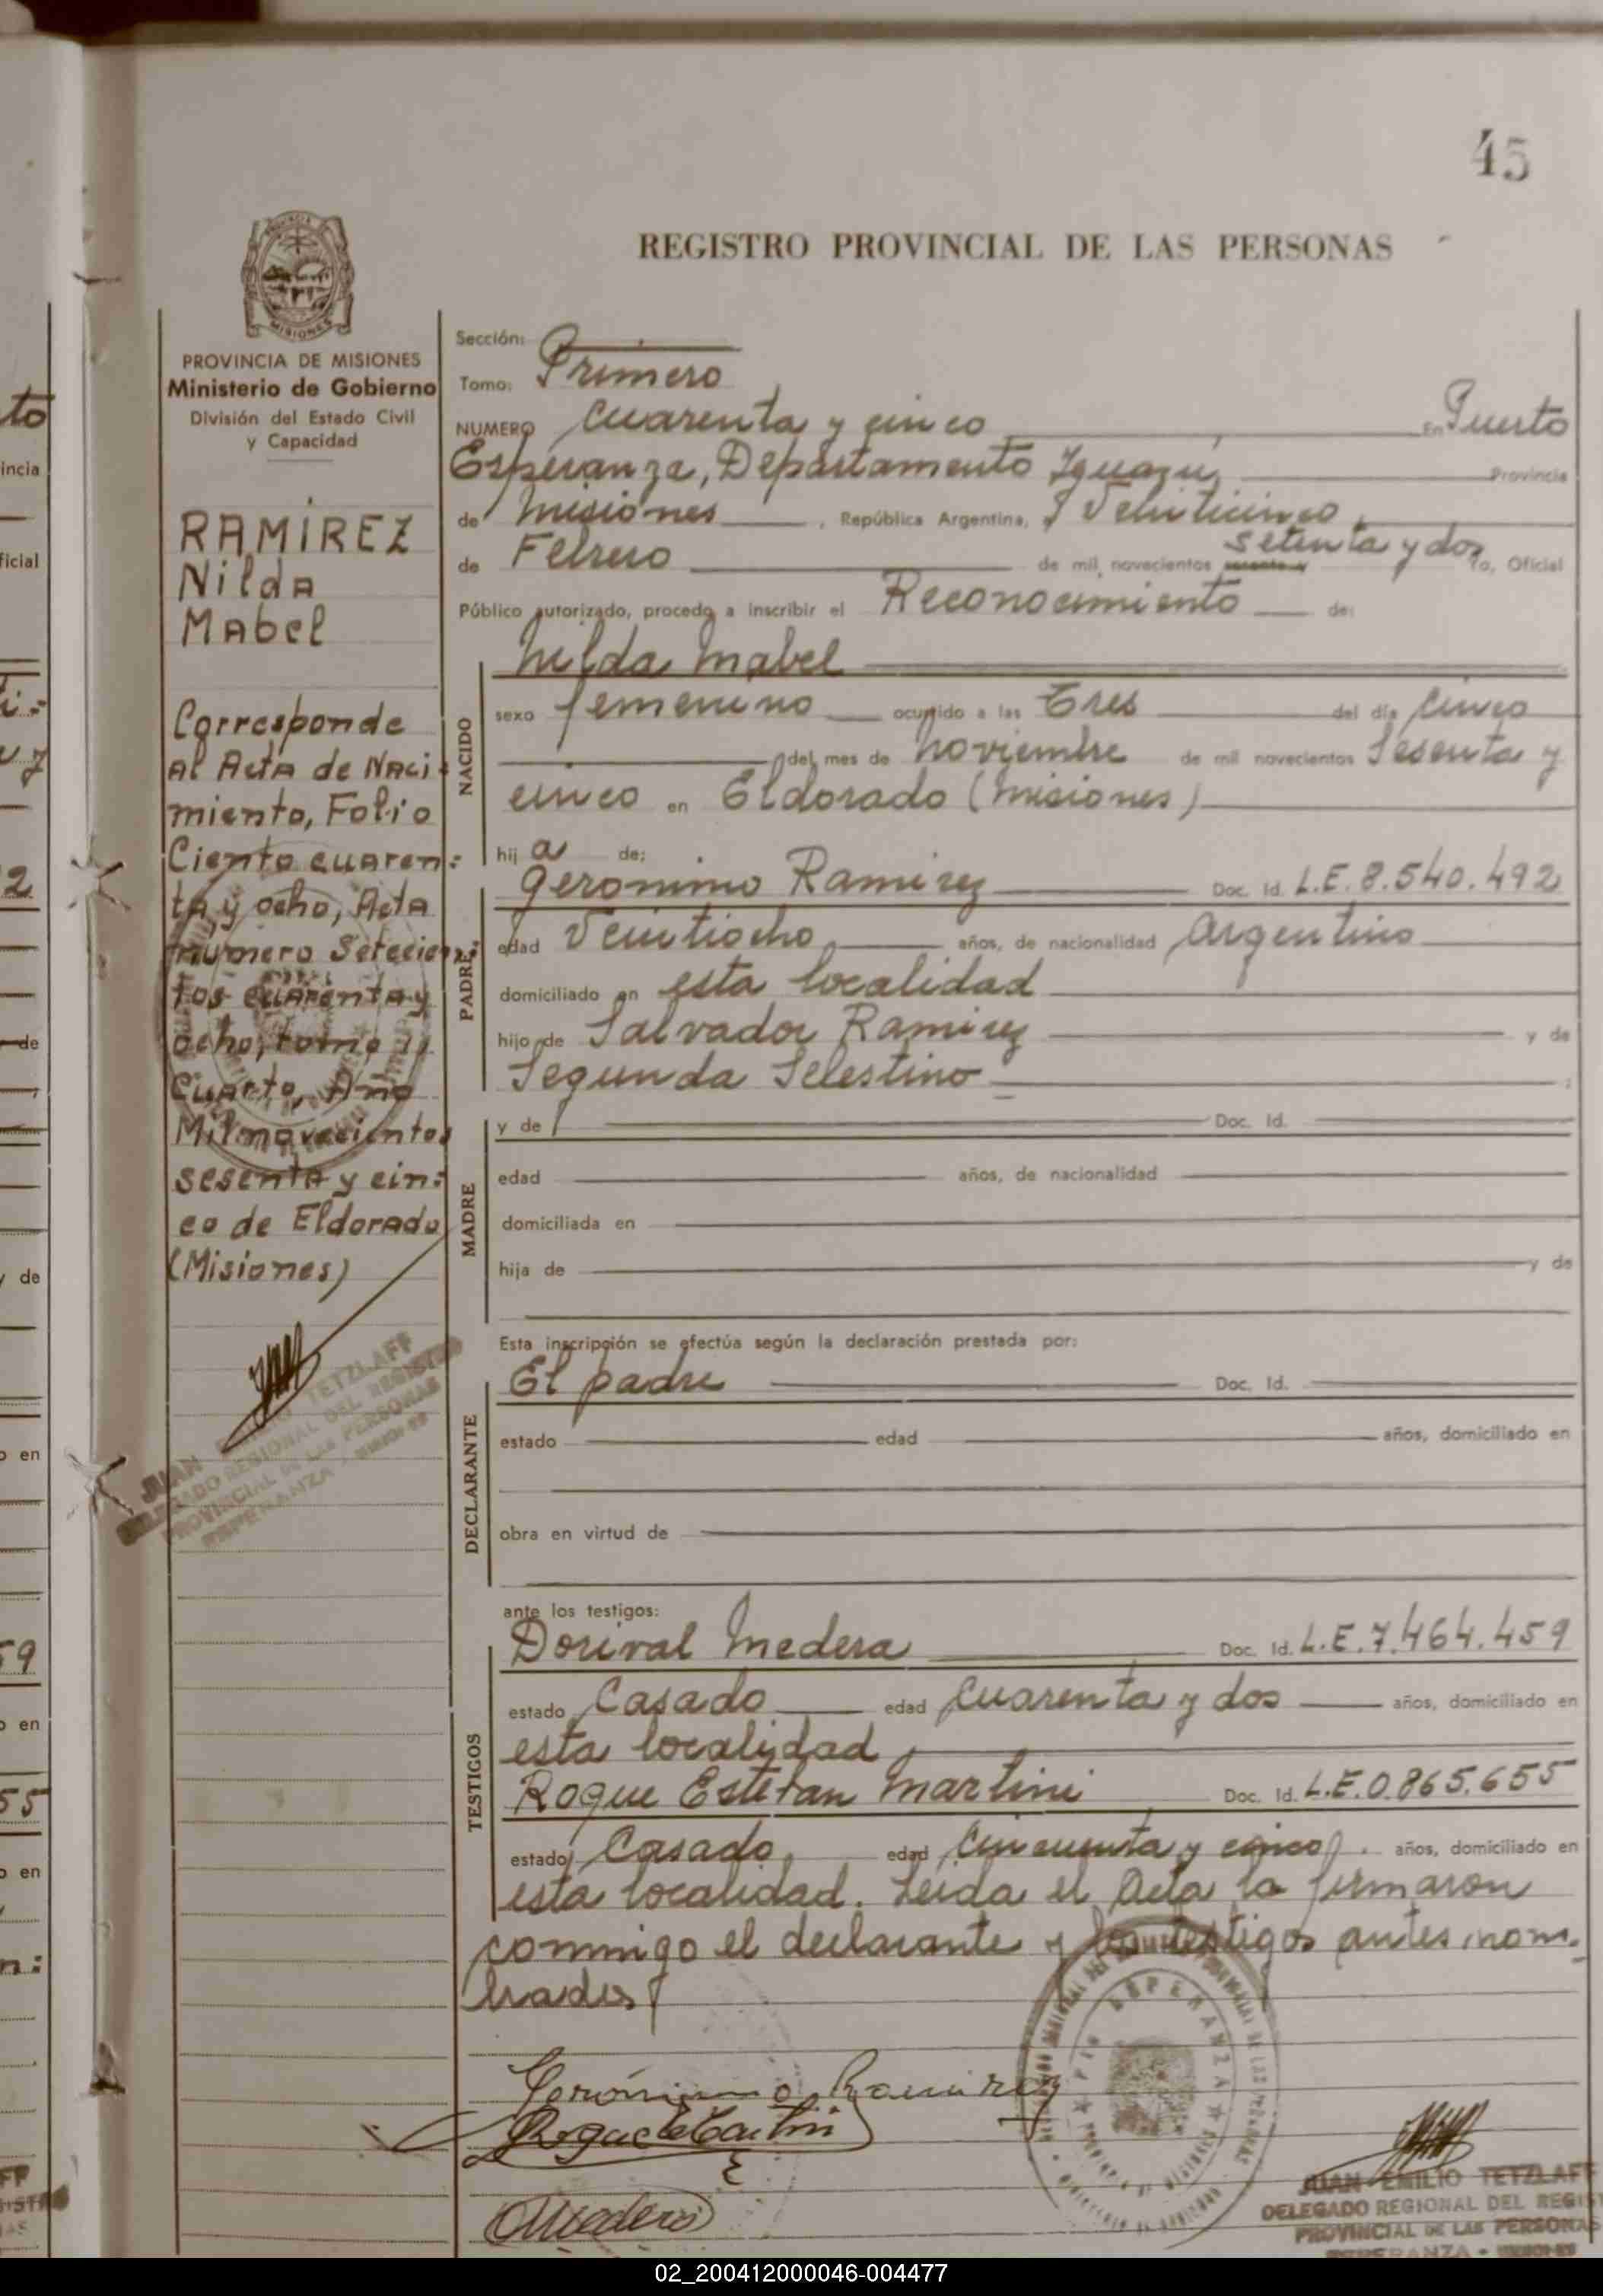 45
REGISTRO PROVINCIAL DE LAS PERSONAS
PROVINCIA DE MISIONES
Ministerio de Gobierno
División del Estado Civil
y Capacidad
RAMIREZ
Nilda
Mabel
Corresponde
al Acta de Naci-
miento, Folio
Ciento cuaren=
ta y ocho, Acta
número Setecien=
tos cuarenta y
ocho, tomo
Cuarto, Año
Mil novecientos
sesenta y cin=
co de Eldorado
(Misiones)
JUAN TETZLAFF
DELEGADO REGIONAL DEL REGISTRO
PROVINCIAL DE LAS PERSONAS
ESPERANZA - MISIONES
Sección:
Tomo: Primero
NUMERO Cuarenta y cinco En Puerto
Esperanza, Departamento Iguazú, Provincia
de Misiones, República Argentina, a Veinticinco
de Febrero de mil novecientos setenta y dos Yo, Oficial
Público autorizado, procedo a inscribir el Reconocimiento de:
NACIDO
Nilda Mabel
sexo femenino ocurrido a las Tres del día cinco
del mes de noviembre de mil novecientos Sesenta y
cinco en Eldorado (Misiones)
hij a de:
PADRE
Geronimo Ramirez Doc. Id. L.E. 8.540.492
edad Veintiocho años, de nacionalidad Argentino
domiciliado en esta localidad
hijo de Salvador Ramirez y de
Segunda Selestino
MADRE
y de Doc. Id.
edad años, de nacionalidad
domiciliada en
hija de y de
Esta inscripción se efectúa según la declaración prestada por:
DECLARANTE
El padre Doc. Id.
estado edad años, domiciliado en
obra en virtud de
ante los testigos:
TESTIGOS
Dorival Medera Doc. Id. L.E. 7.464.459
estado Casado edad Cuarenta y dos años, domiciliado en
esta localidad
Roque Esteban Martini Doc. Id. L.E. 0.865.655
estado Casado edad Cincuenta y cinco años, domiciliado en
esta localidad. Leida el Acta la firmaron
conmigo el declarante y los testigos antes nom-
brados
Gerónimo Ramirez
Roque E Martini
Medera
ESPERANZA
JUAN EMILIO TETZLAFF
DELEGADO REGIONAL DEL REGIST
PROVINCIAL DE LAS PERSONAS
ESPERANZA - MISIONES
02_200412000046-004477